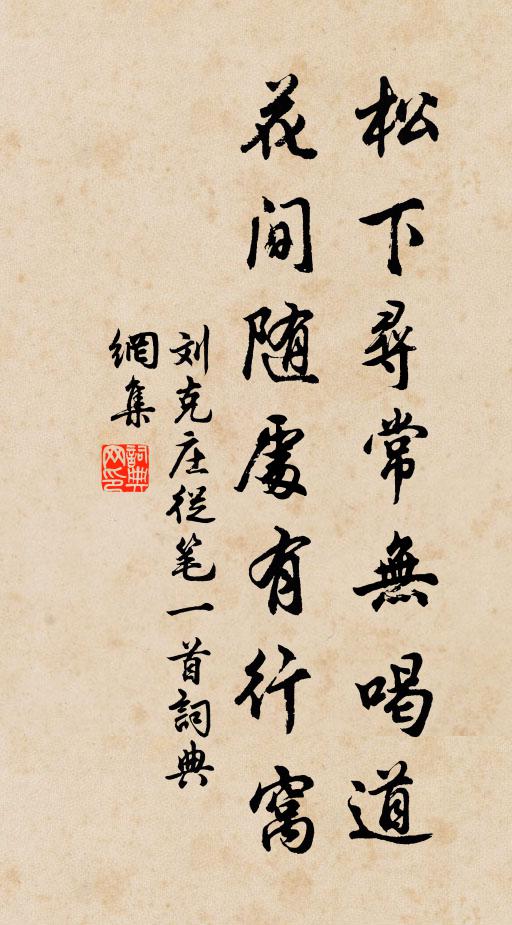 松下尋常無喝道
花间随處有行窩
刘克庄從笔一首詞典
網集
詞典網印